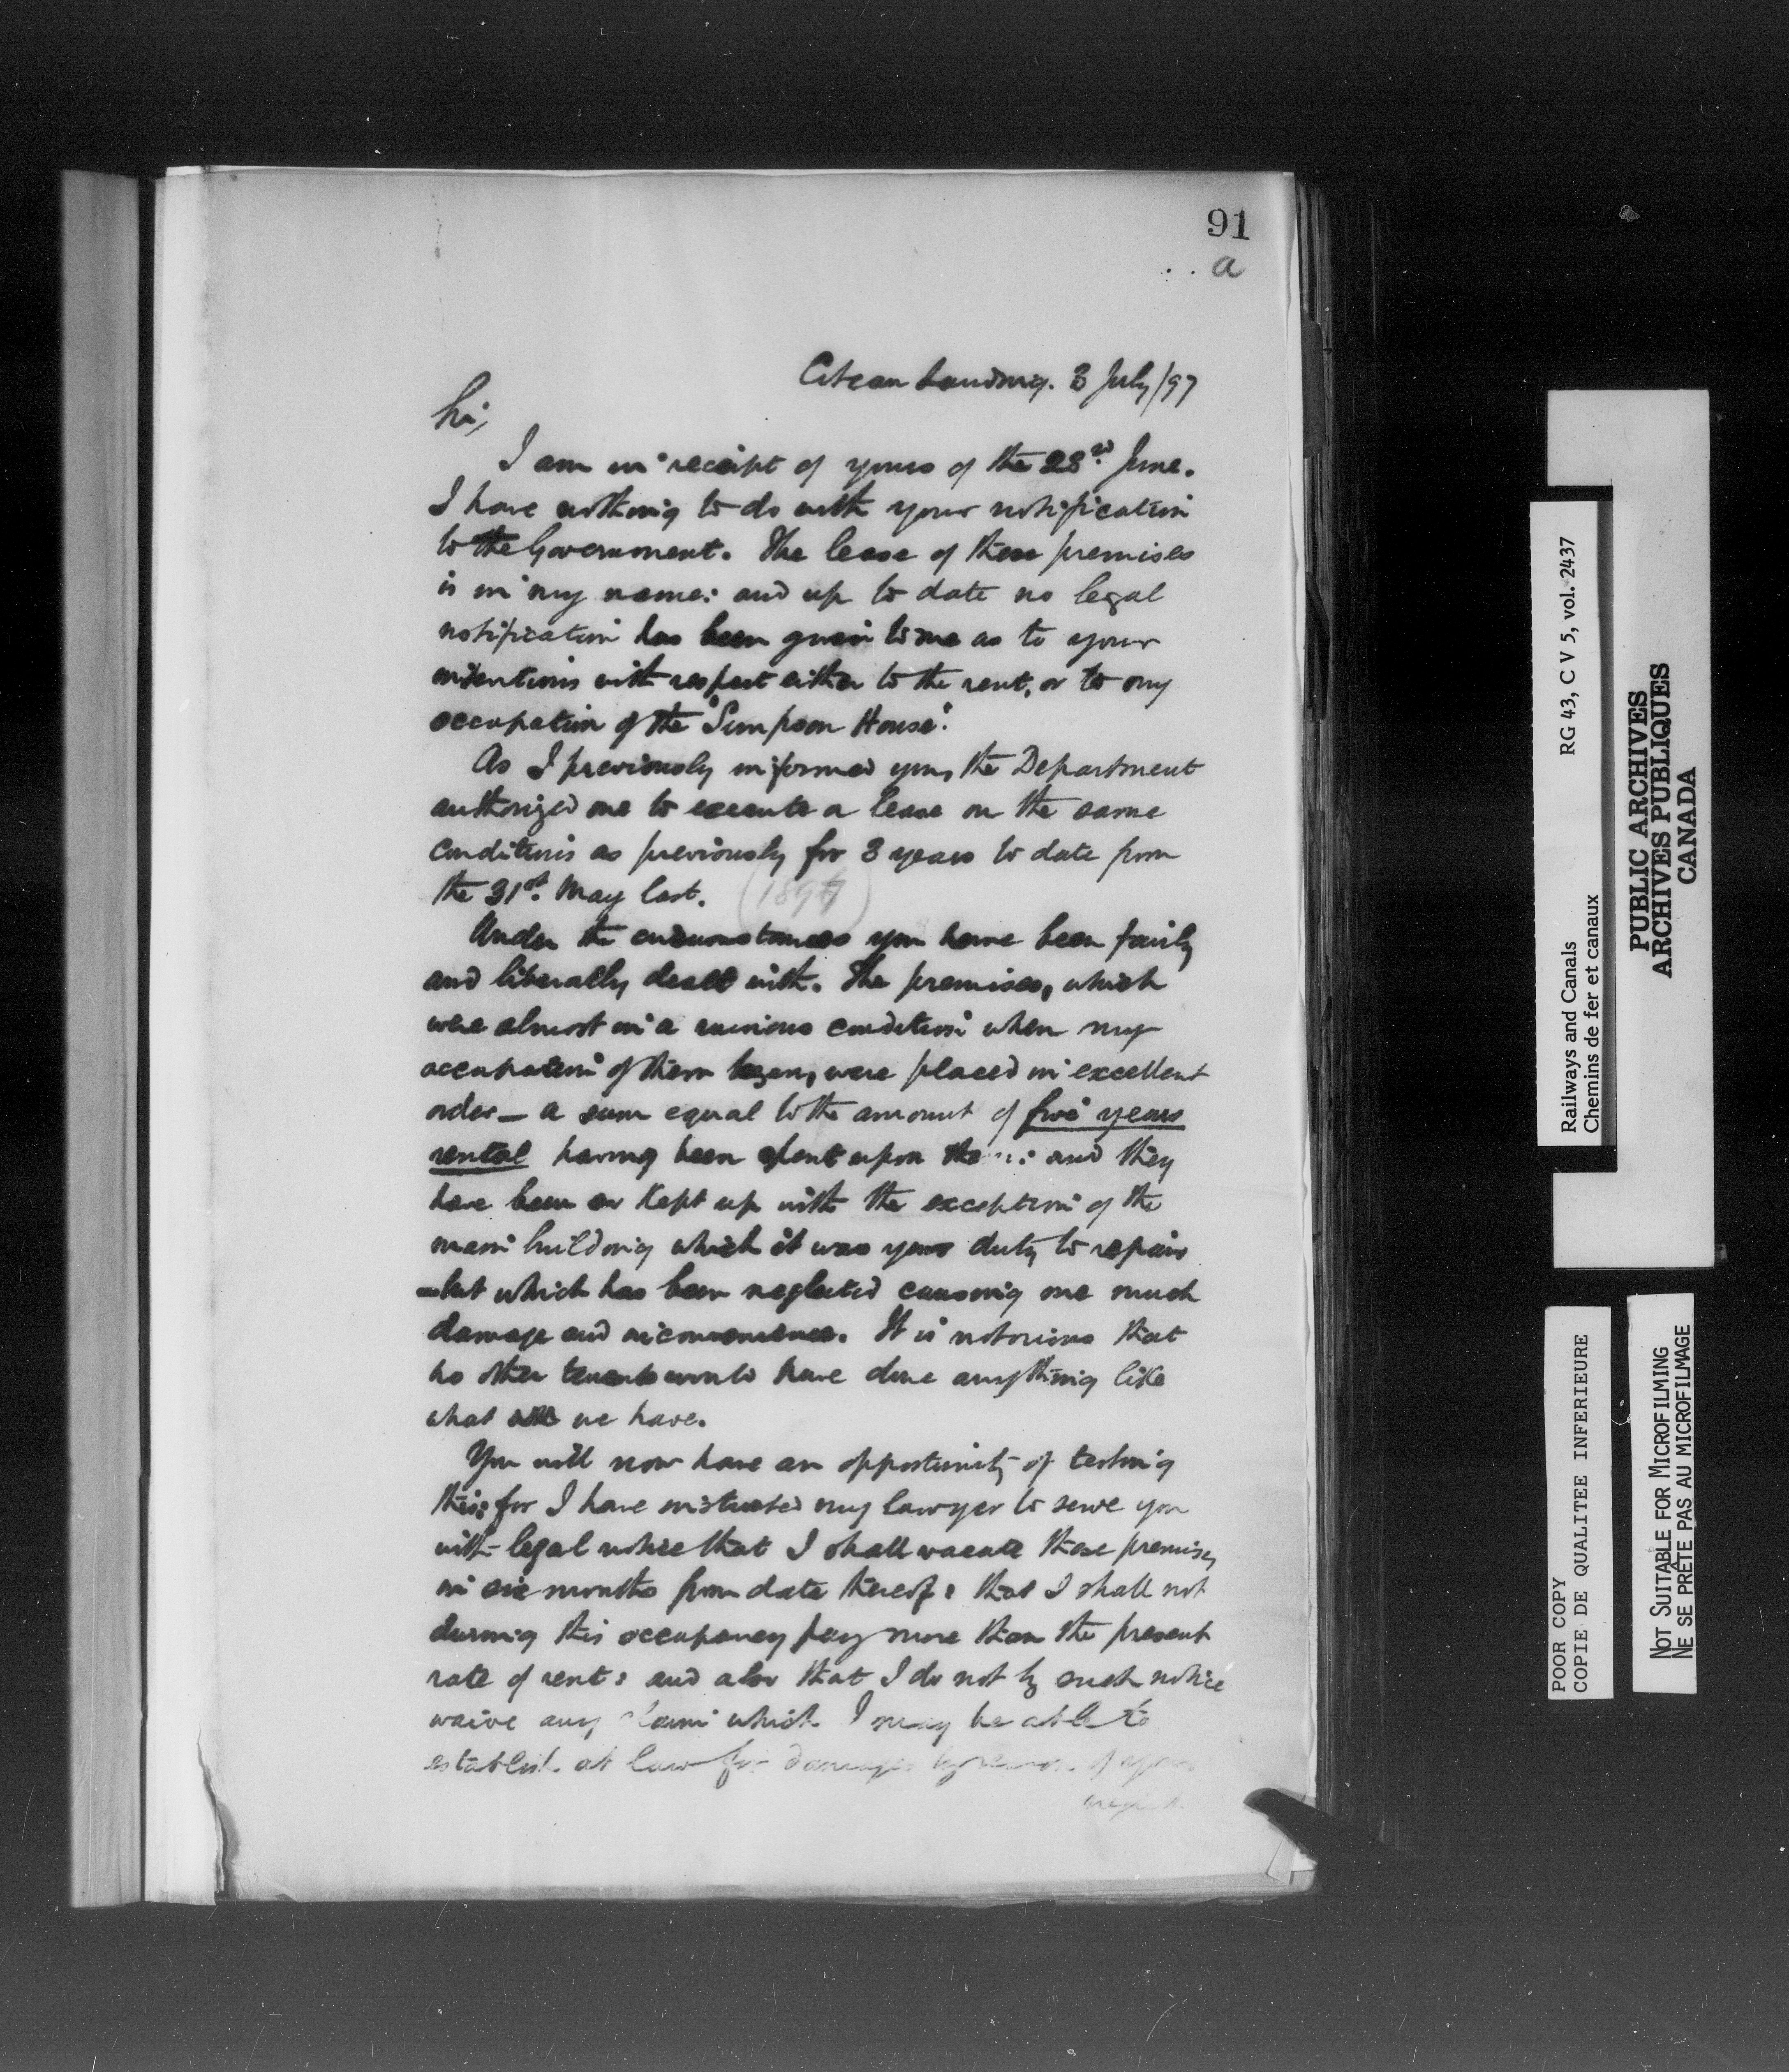 91
a
Coteau Landing. 3 July/97
Sir,
I am in receipt of yours of the 23rd June.
I have nothing to do with your notification
to the Government. The lease of these premises
is in my name: and up to date no legal
notification has been given to me as to your
intentions with respect either to the rent, or to my
occupation of the "Simpson House".
As I previously informed you, the Department
authorized me to execute a lease on the same
conditions as previously for 3 years to date from
the 31st. May last. (1897)
Under the circumstances you have been fairly
and liberally dealt with. The premises, which
were almost in a ruinous condition when my
occupation of them began, were placed in excellent
order — a sum equal to the amount of five years
rental having been spent upon them: and they
have been so kept up with the exception of the
main building which it was your duty to repair
– but which has been neglected causing me much
damage and inconvenience. It is notorious that
no other tenants would have done anything like
what we have.
You will now have an opportunity of testing
this: for I have instructed my lawyer to serve you
with legal notice that I shall vacate these premises
in six months from date thereof: that I shall not
during this occupancy pay more than the present
rate of rent: and also that I do not by such notice
waive any claim which I may be able to
establish at law for damages by reason of your
neglect.
Railways and Canals
Chemins de fer et canaux
RG 43, C V 5, vol. 2437
PUBLIC ARCHIVES
ARCHIVES PUBLIQUES
CANADA
POOR COPY
COPIE DE QUALITEE INFERIEURE
NOT SUITABLE FOR MICROFILMING
NE SE PRÊTE PAS AU MICROFILMAGE